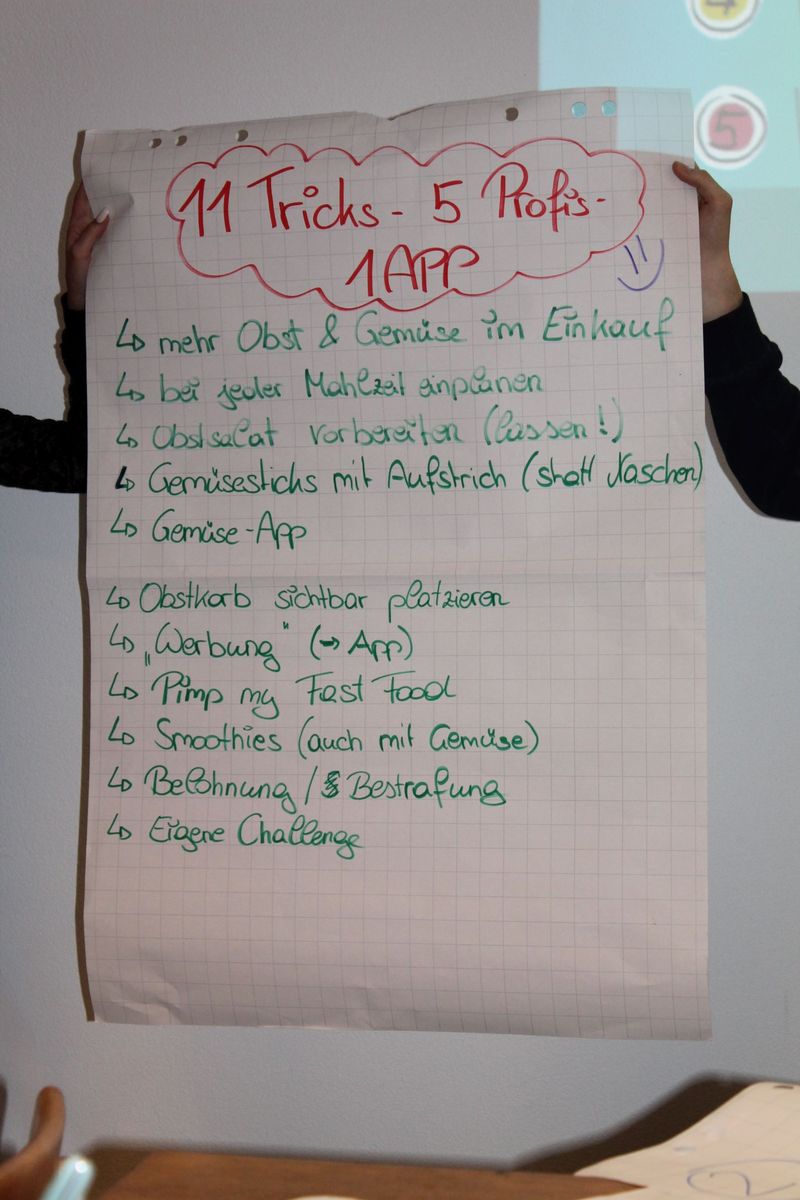 4
5
11 Tricks - 5 Profis -
1 APP
↳ mehr Obst & Gemüse im Einkauf
↳ bei jeder Mahlzeit einplanen
↳ Obstsalat vorbereiten (lassen!)
↳ Gemüsesticks mit Aufstrich (statt Naschen)
↳ Gemüse-App
↳ Obstkorb sichtbar platzieren
↳ „Werbung" (→ App)
↳ Pimp my Fast Food
↳ Smoothies (auch mit Gemüse)
↳ Belohnung / Bestrafung
↳ Eigene Challenge